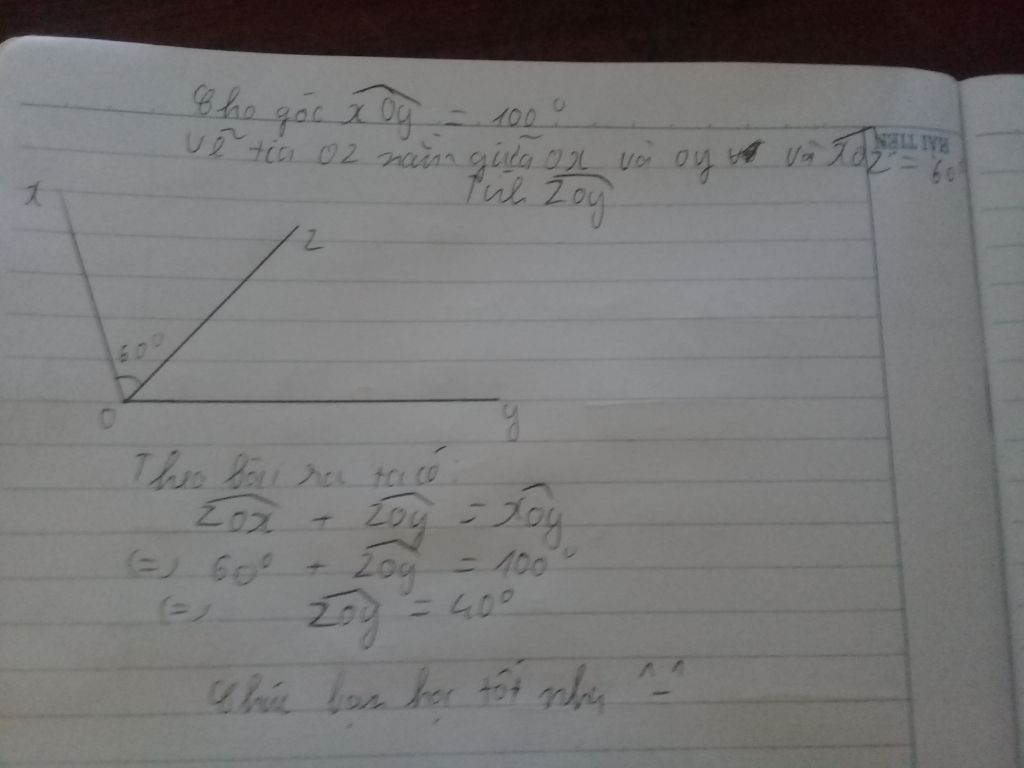 Cho góc xOy = 100°
Vẽ tia Oz nằm giữa Ox và Oy và xOz = 60°
Tính zOy
HẢI TIẾN
x
z
60°
O
y
Theo bài ra ta có:
zOx + zOy = xOy
(=) 60° + zOy = 100°
(=) zOy = 40°
Chúc bạn học tốt nha ^_^